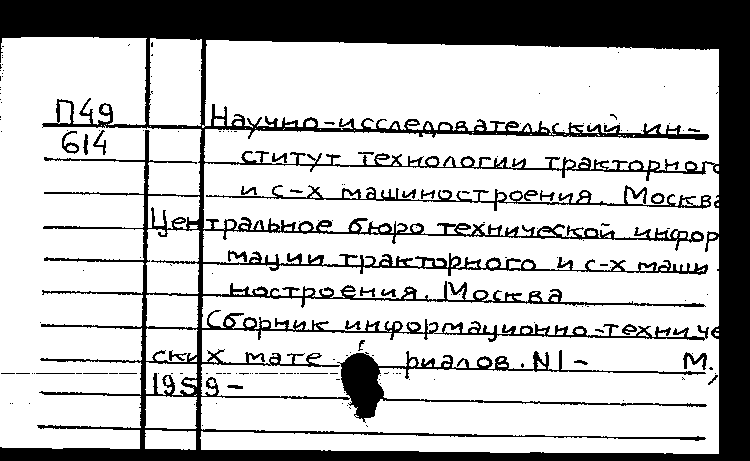 П49
614
Научно-исследовательский ин-
ститут технологии тракторного
и с-х машиностроения. Москва
Центральное бюро технической инфор
мации тракторного и с-х маши-
ностроения. Москва
Сборник информационно-техниче
ских мате риалов. N1- М.,
1959-